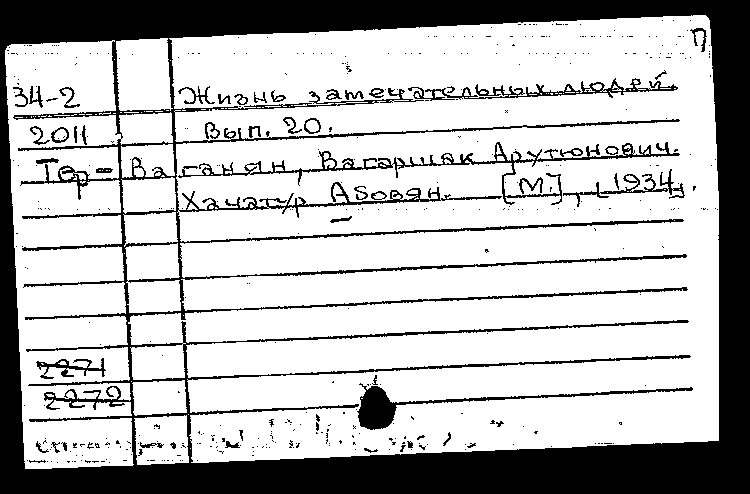 П
34-2 Жизнь замечательных людей.
2011 Вып. 20.
Тер-Ваганян, Вагаршак Арутюнович.
Хачатур Абовян. [М.], [1934].
2271
2272